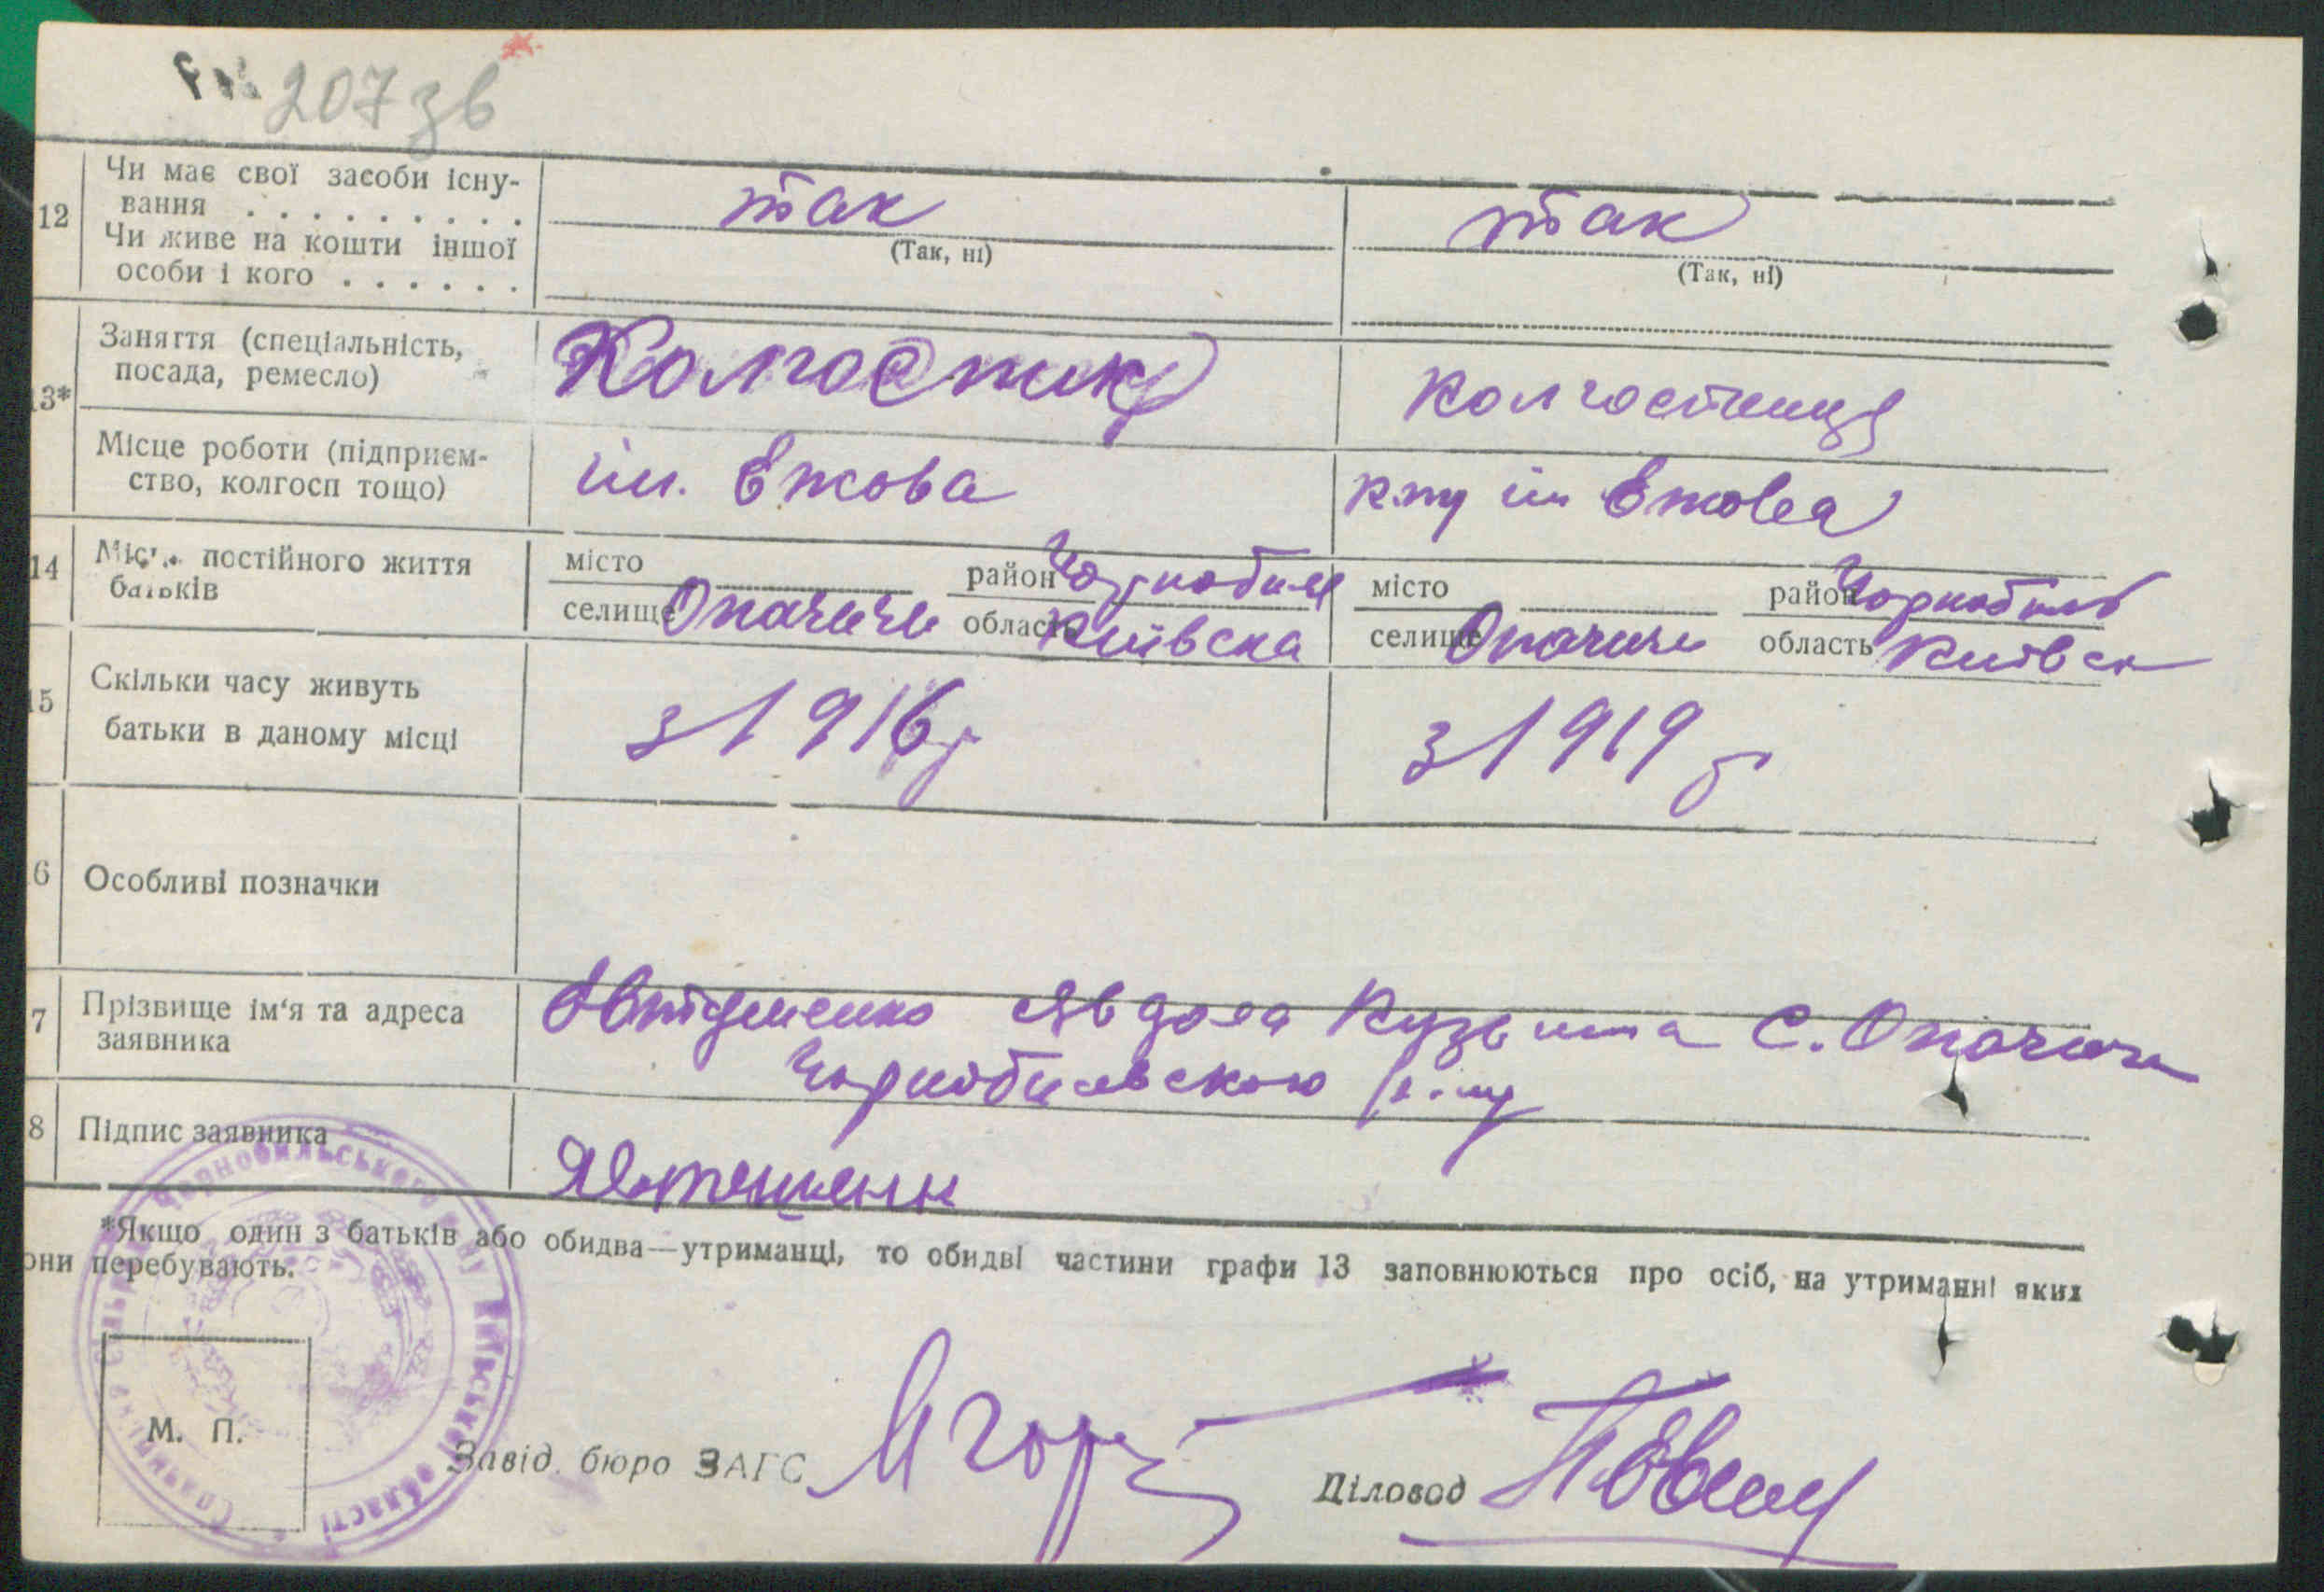 207 зв
12 Чи має свої засоби існу-
вання . . . . . . . . . . так так
Чи живе на кошти іншої (Так, ні) (Так, ні)
особи і кого . . . . . .
13* Заняття (спеціальність,
посада, ремесло) Колгоспник колгостниця
Місце роботи (підприєм-
ство, колгосп тощо) ім. Ежова ім Ежова
14 постійного життя
батьків
місто район Чорнобил місто район Чорнобиль
селище Опачичи область Київска селище Опачичи область Київск
15 Скільки часу живуть
батьки в даному місці з 1916 р з 1919 р
6 Особливі позначки
7 Прізвище ім'я та адреса
заявника
Явдоха С. Опачичи
Чорнобилвского р-ну
8 Підпис заявника
*Якщо один з батьків або обидва—утриманці, то обидві частини графи 13 заповнюються про осіб, на утриманні яких
они перебувають.
Чорнобильського р-ну Київської області
М. П.
Завід. бюро ЗАГС Діловод